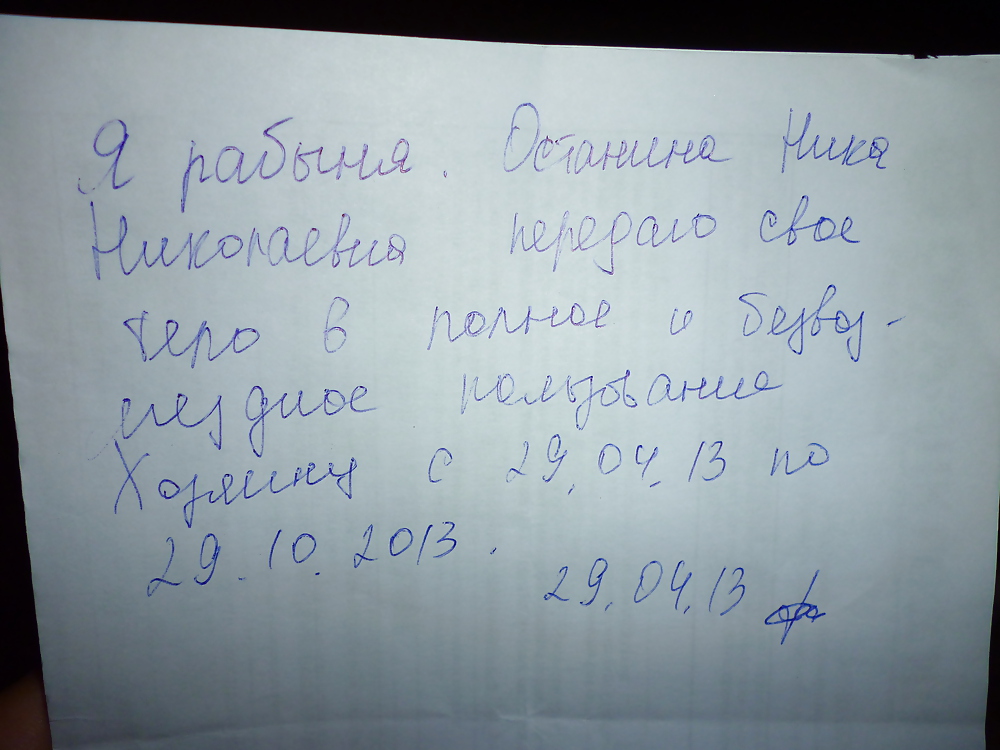 Я рабыня. Останина Ника
Николаевна передаю свое
тело в полное и безвоз-
мездное пользование
Хозяину с 29.04.13 по
29.10.2013.
29.04.13